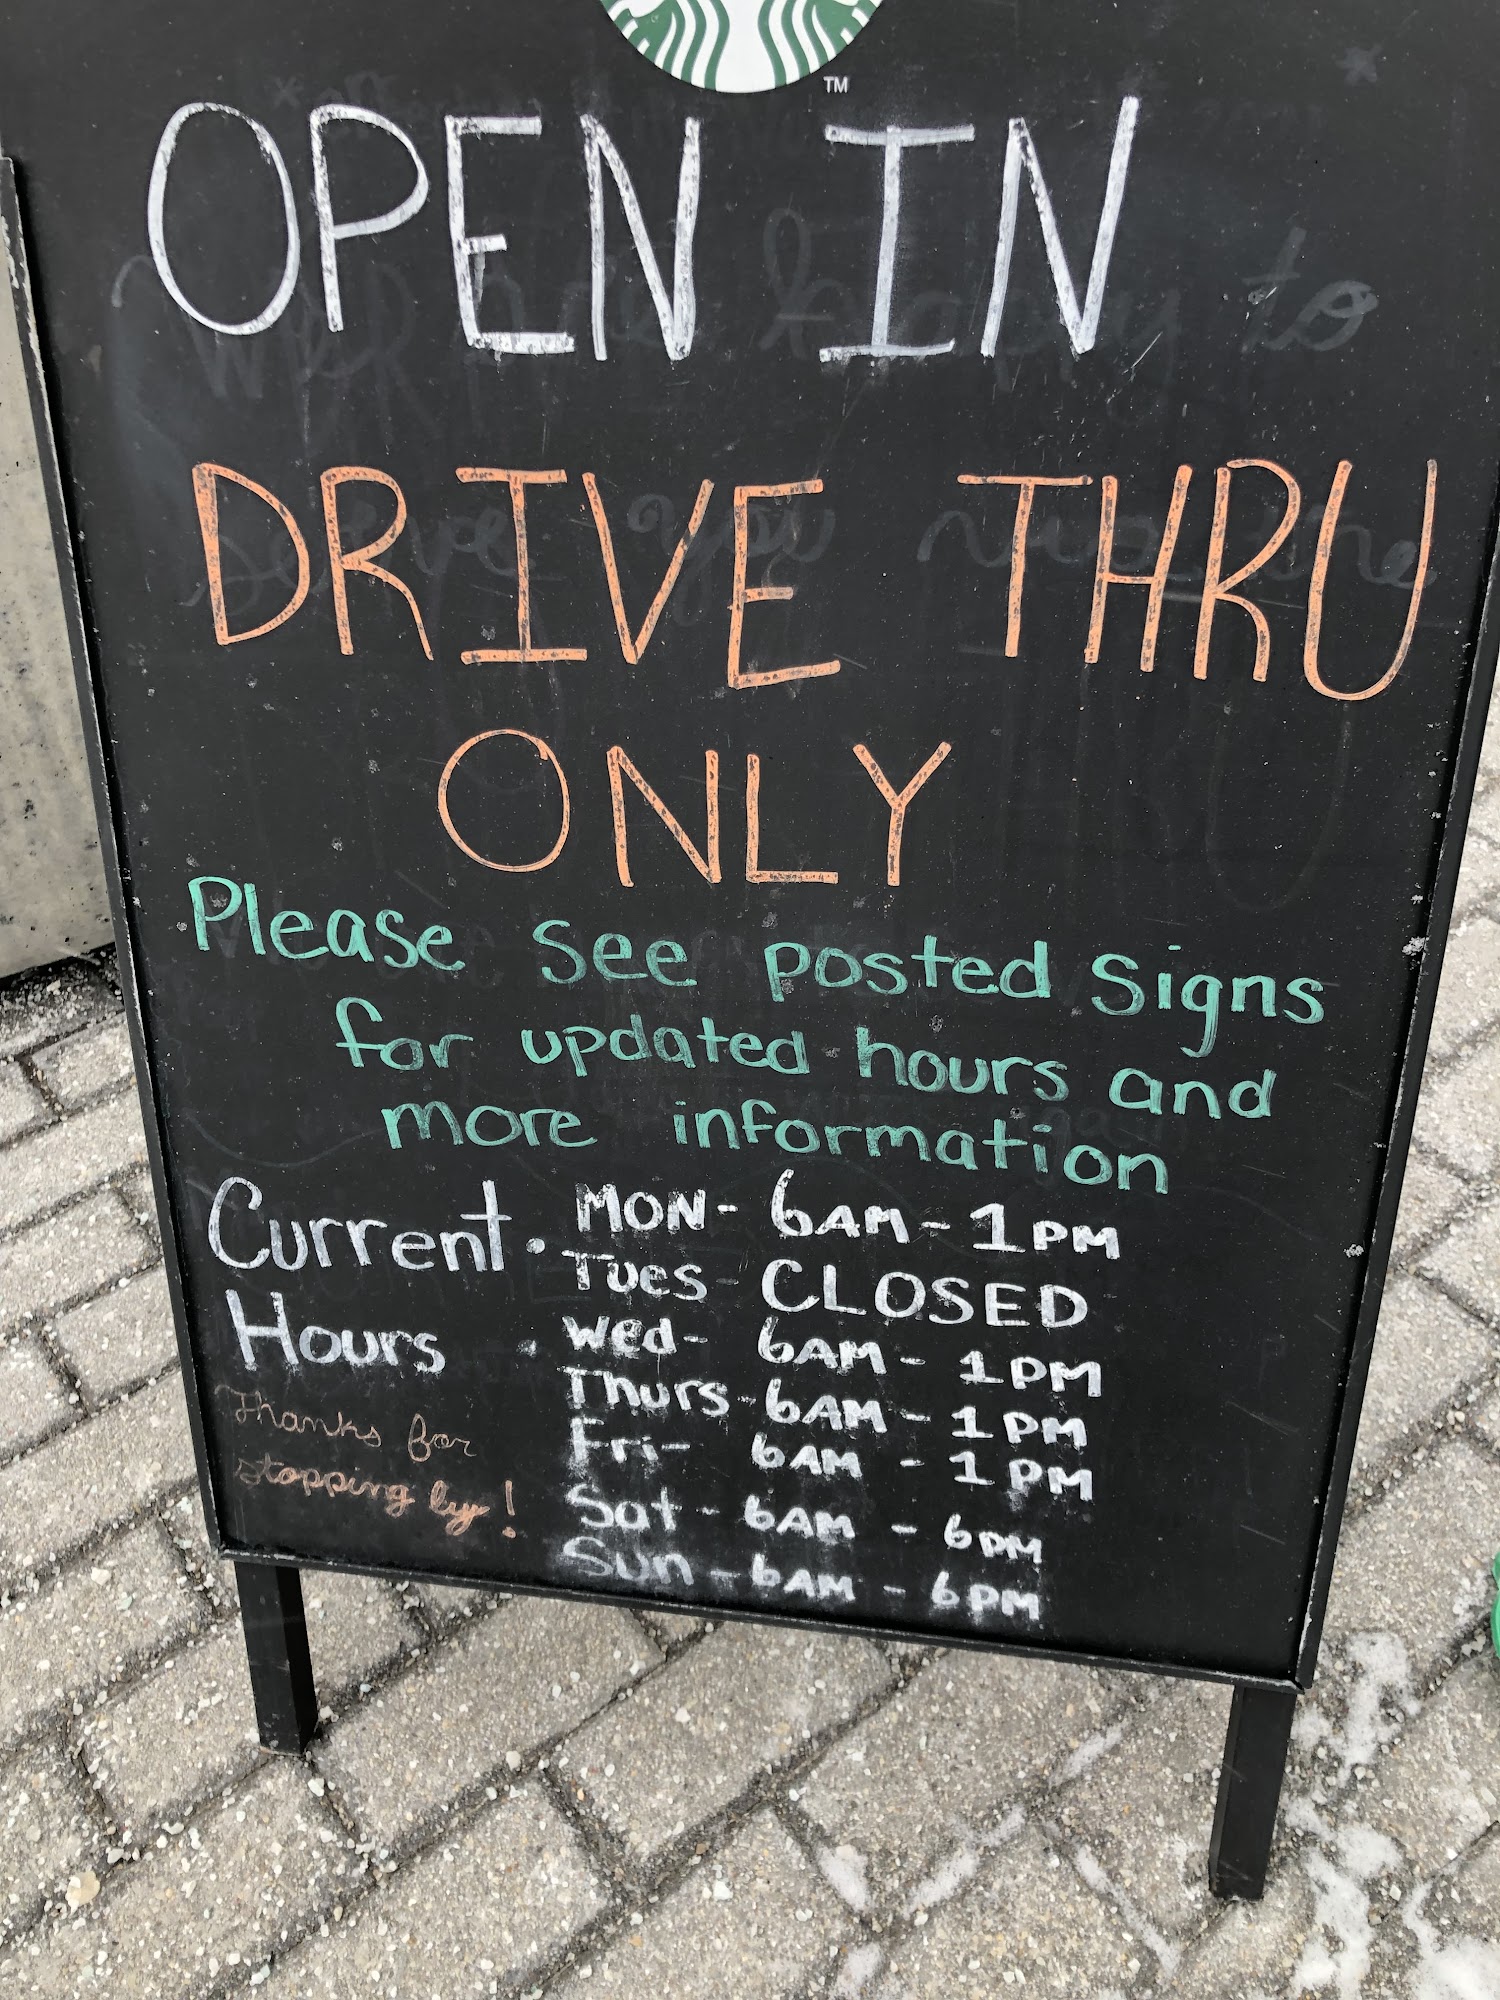 TM
OPEN IN
DRIVE THRU
ONLY
Please see posted signs
for updated hours and
more information
Current
Hours
Thanks for
stopping by!
• MON - 6AM - 1PM
Tues - CLOSED
• Wed - 6AM - 1PM
Thurs - 6AM - 1PM
Fri - 6AM - 1PM
Sat - 6AM - 6PM
Sun - 6AM - 6PM